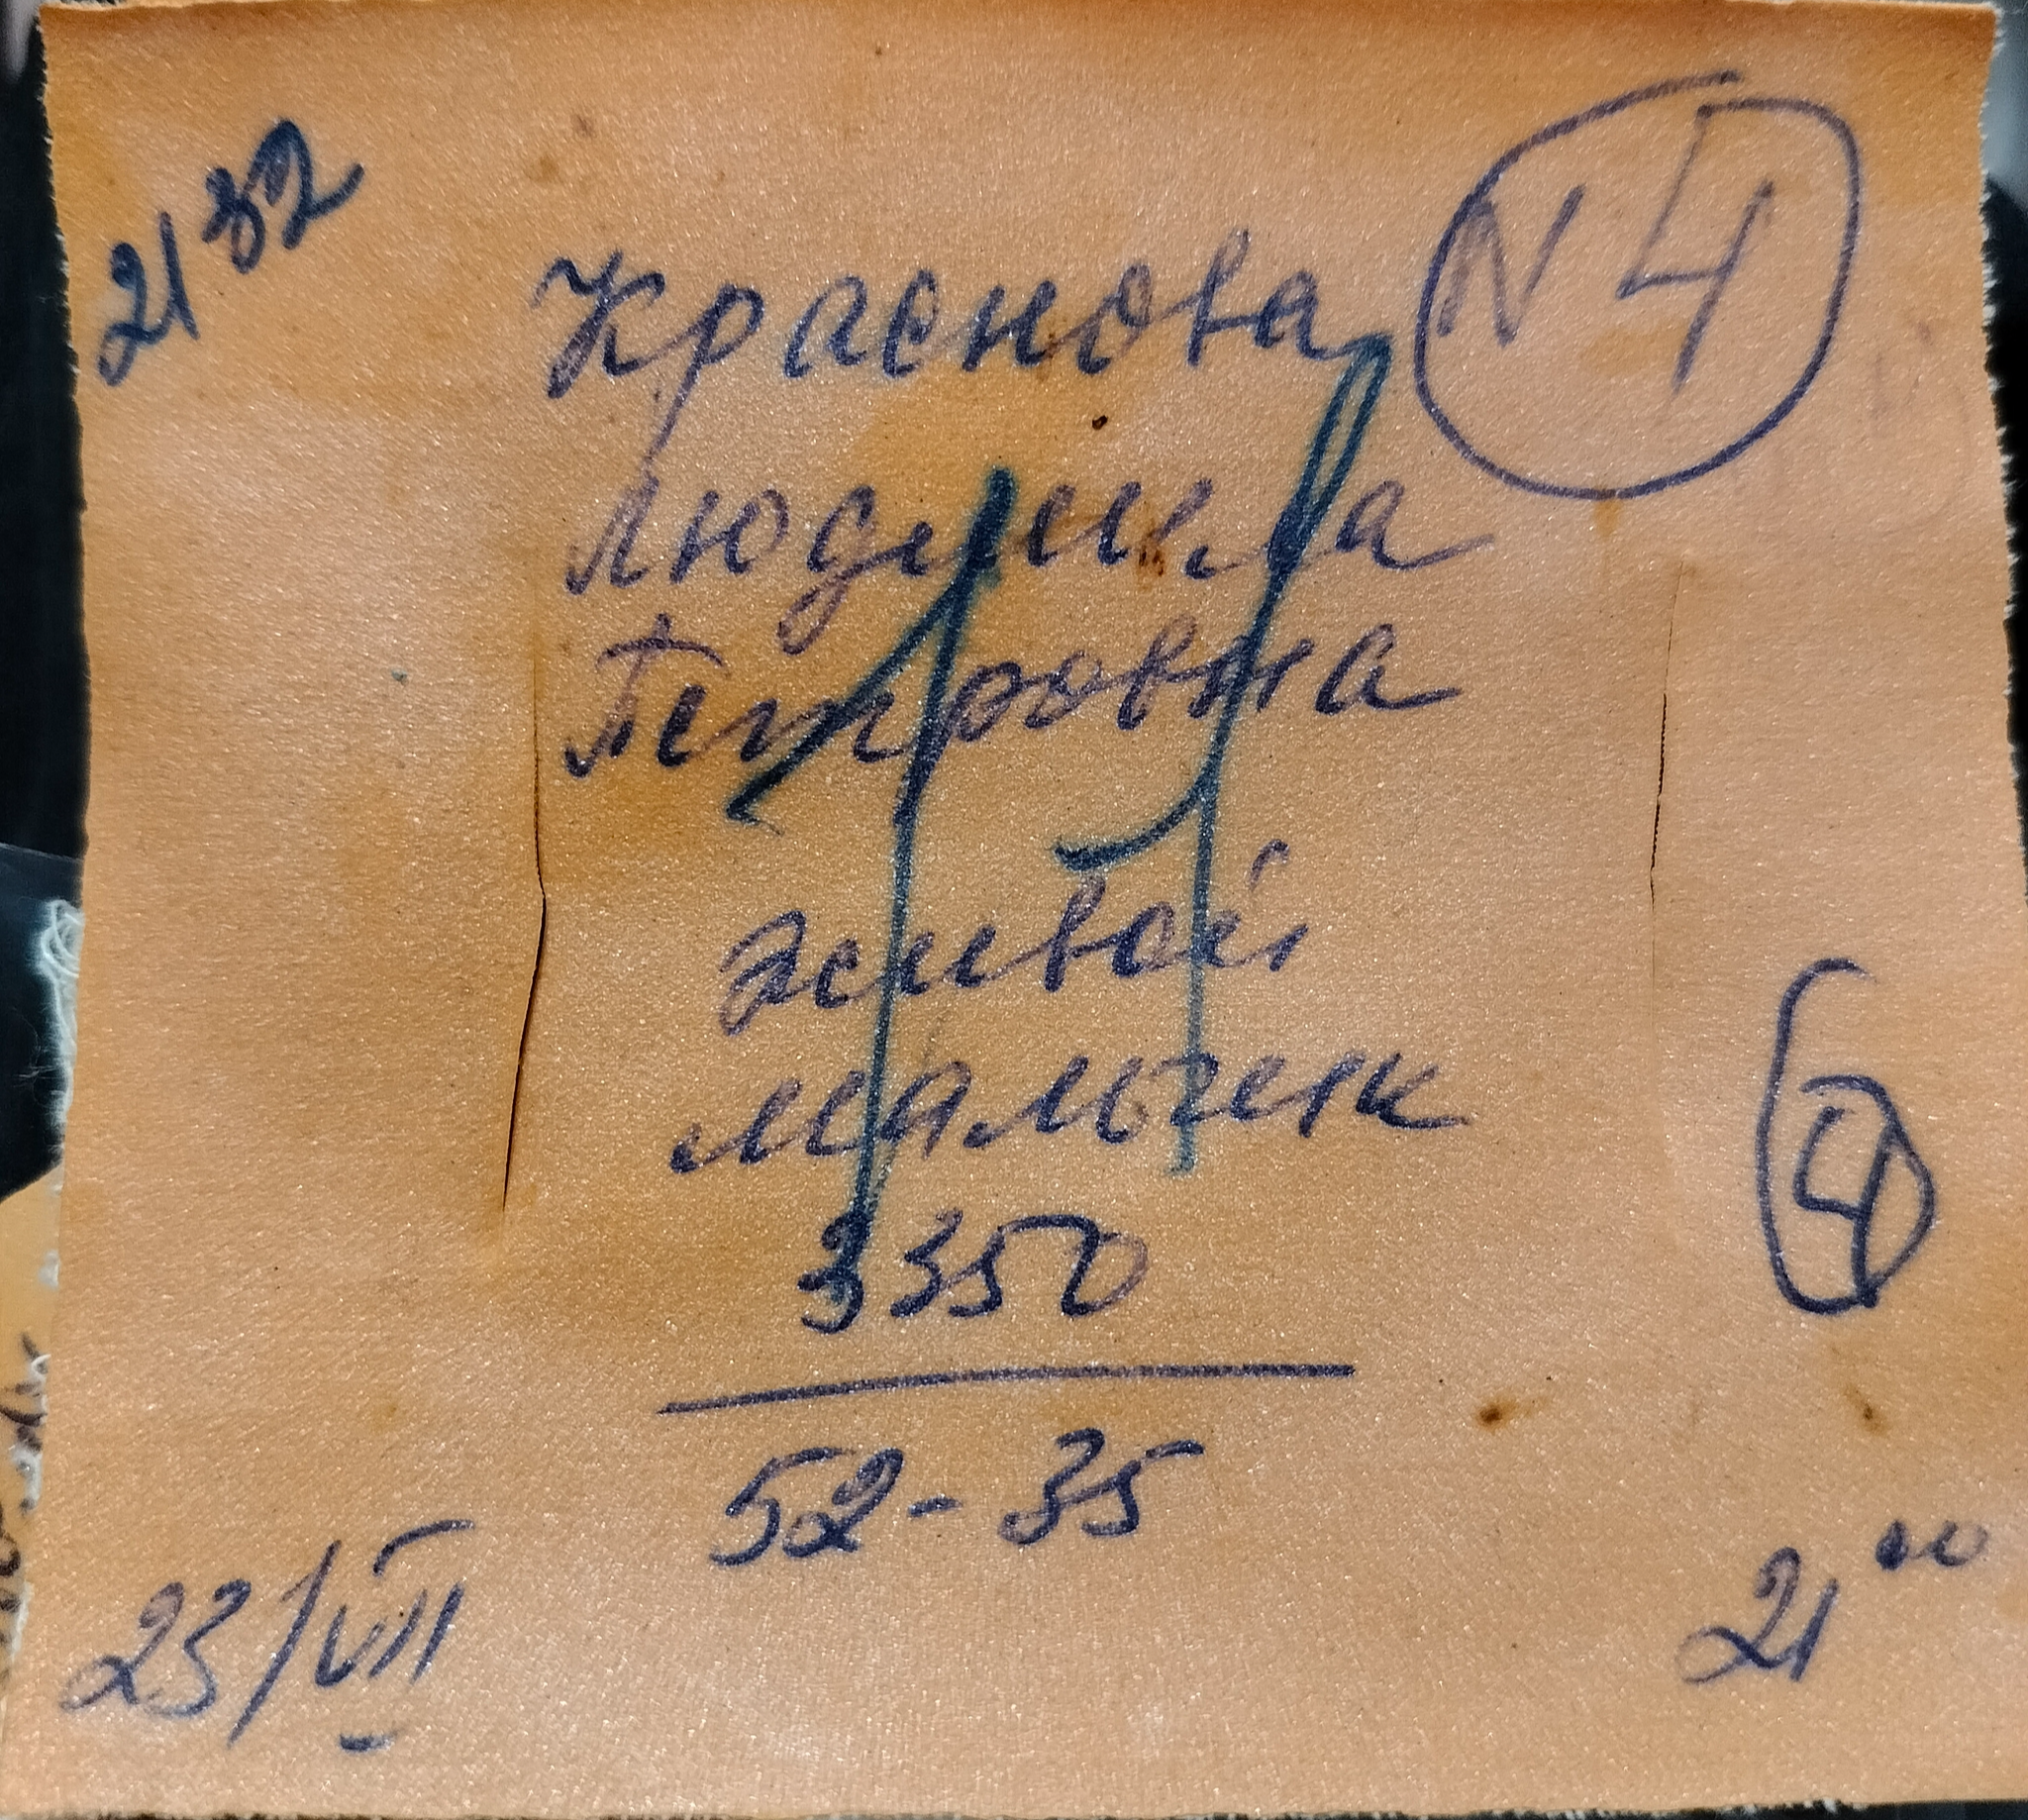 21 32
N 4
Краснова
Людмила
Петровна
11
живой
мальчик
3350
52-35
4
23/VII
21 00